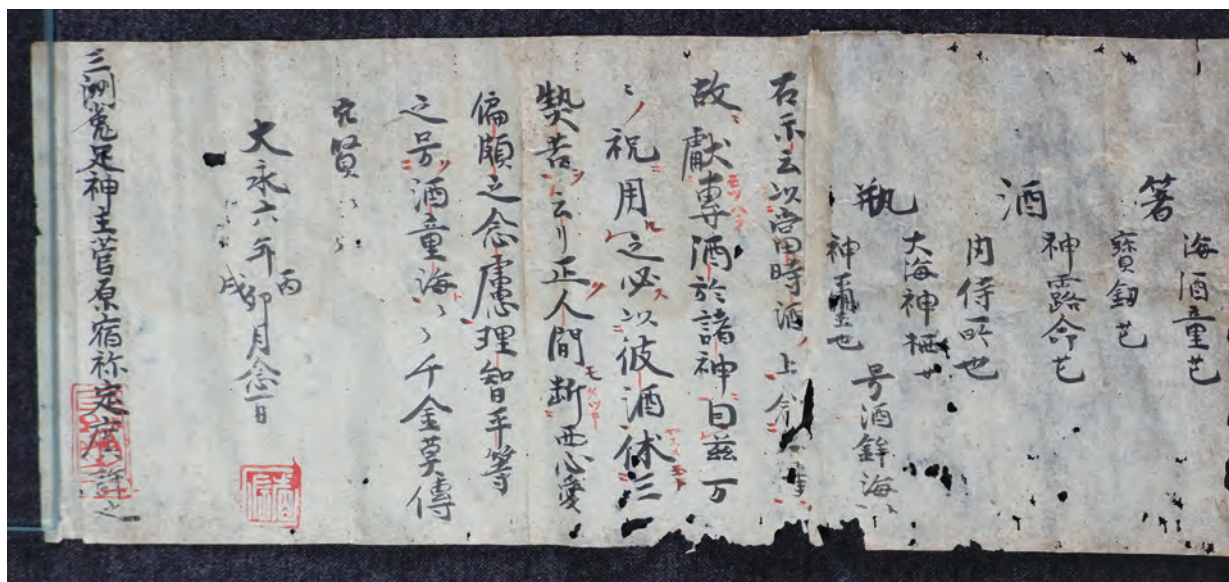 箸 海酒童也
寶釼也
酒 神露命也
内侍所也
瓶 大海神栖也
神璽也 号酒鉾海
右示云以當田時酒ノ上分
故ニ獻專モツハラ酒於諸神自茲万
ミノ祝用之必ス以彼酒休三
熱苦ヲ云リ正人間断悪心愛
偏頗之念慮理智平等
之号酒童海ミミ千金莫傳
ミミ
大永六年丙戌卯月念一日
三洲菟足神主菅原宿祢定廣誌之